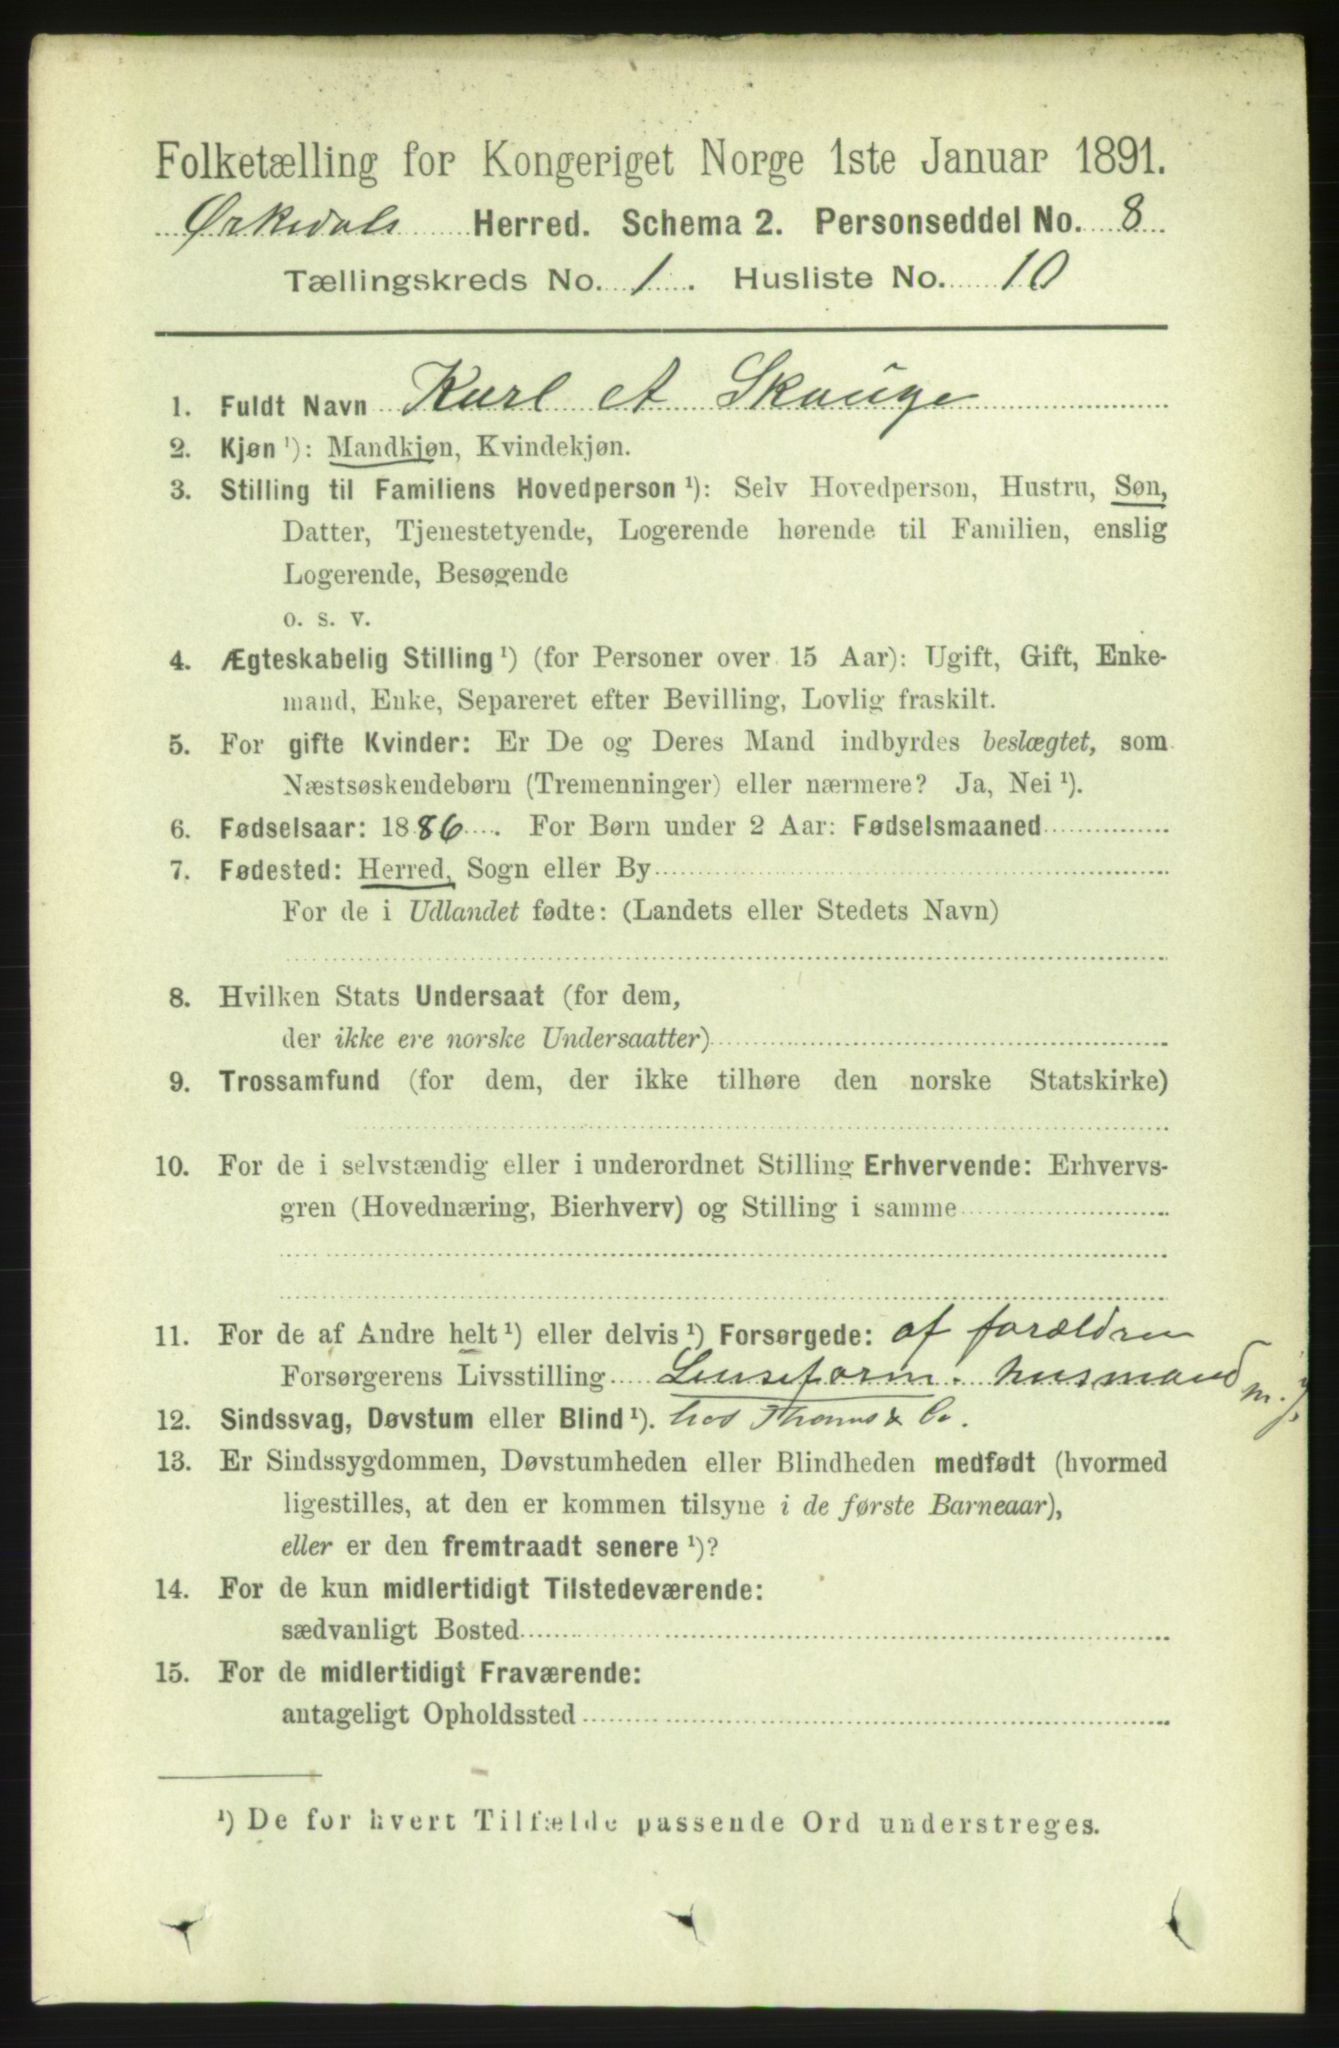 Folketælling for Kongeriget Norge 1ste Januar 1891.
Ørkedals Herred. Schema 2. Personseddel No. 8
Tællingskreds No. 1. Husliste No. 10
1. Fuldt Navn Karl A Skauge
2. Kjøn ¹): Mandkjøn, Kvindekjøn.
3. Stilling til Familiens Hovedperson ¹): Selv Hovedperson, Hustru, Søn,
Datter, Tjenestetyende, Logerende hørende til Familien, enslig
Logerende, Besøgende
o. s. v.
4. Ægteskabelig Stilling ¹) (for Personer over 15 Aar): Ugift, Gift, Enke-
mand, Enke, Separeret efter Bevilling, Lovlig fraskilt.
5. For gifte Kvinder: Er De og Deres Mand indbyrdes beslægtet, som
Næstsøskendebørn (Tremenninger) eller nærmere? Ja, Nei ¹).
6. Fødselsaar: 1886. For Børn under 2 Aar: Fødselsmaaned
7. Fødested: Herred, Sogn eller By
For de i Udlandet fødte: (Landets eller Stedets Navn)
8. Hvilken Stats Undersaat (for dem,
der ikke ere norske Undersaatter)
9. Trossamfund (for dem, der ikke tilhøre den norske Statskirke)
10. For de i selvstændig eller i underordnet Stilling Erhvervende: Erhvervs-
gren (Hovednæring, Bierhverv) og Stilling i samme
11. For de af Andre helt ¹) eller delvis ¹) Forsørgede: af forældren
Forsørgerens Livsstilling husmand m. j.
12. Sindssvag, Døvstum eller Blind ¹). hos Thams & Co.
13. Er Sindssygdommen, Døvstumheden eller Blindheden medfødt (hvormed
ligestilles, at den er kommen tilsyne i de første Barneaar),
eller er den fremtraadt senere ¹)?
14. For de kun midlertidigt Tilstedeværende:
sædvanligt Bosted
15. For de midlertidigt Fraværende:
antageligt Opholdssted
¹) De for hvert Tilfælde passende Ord understreges.